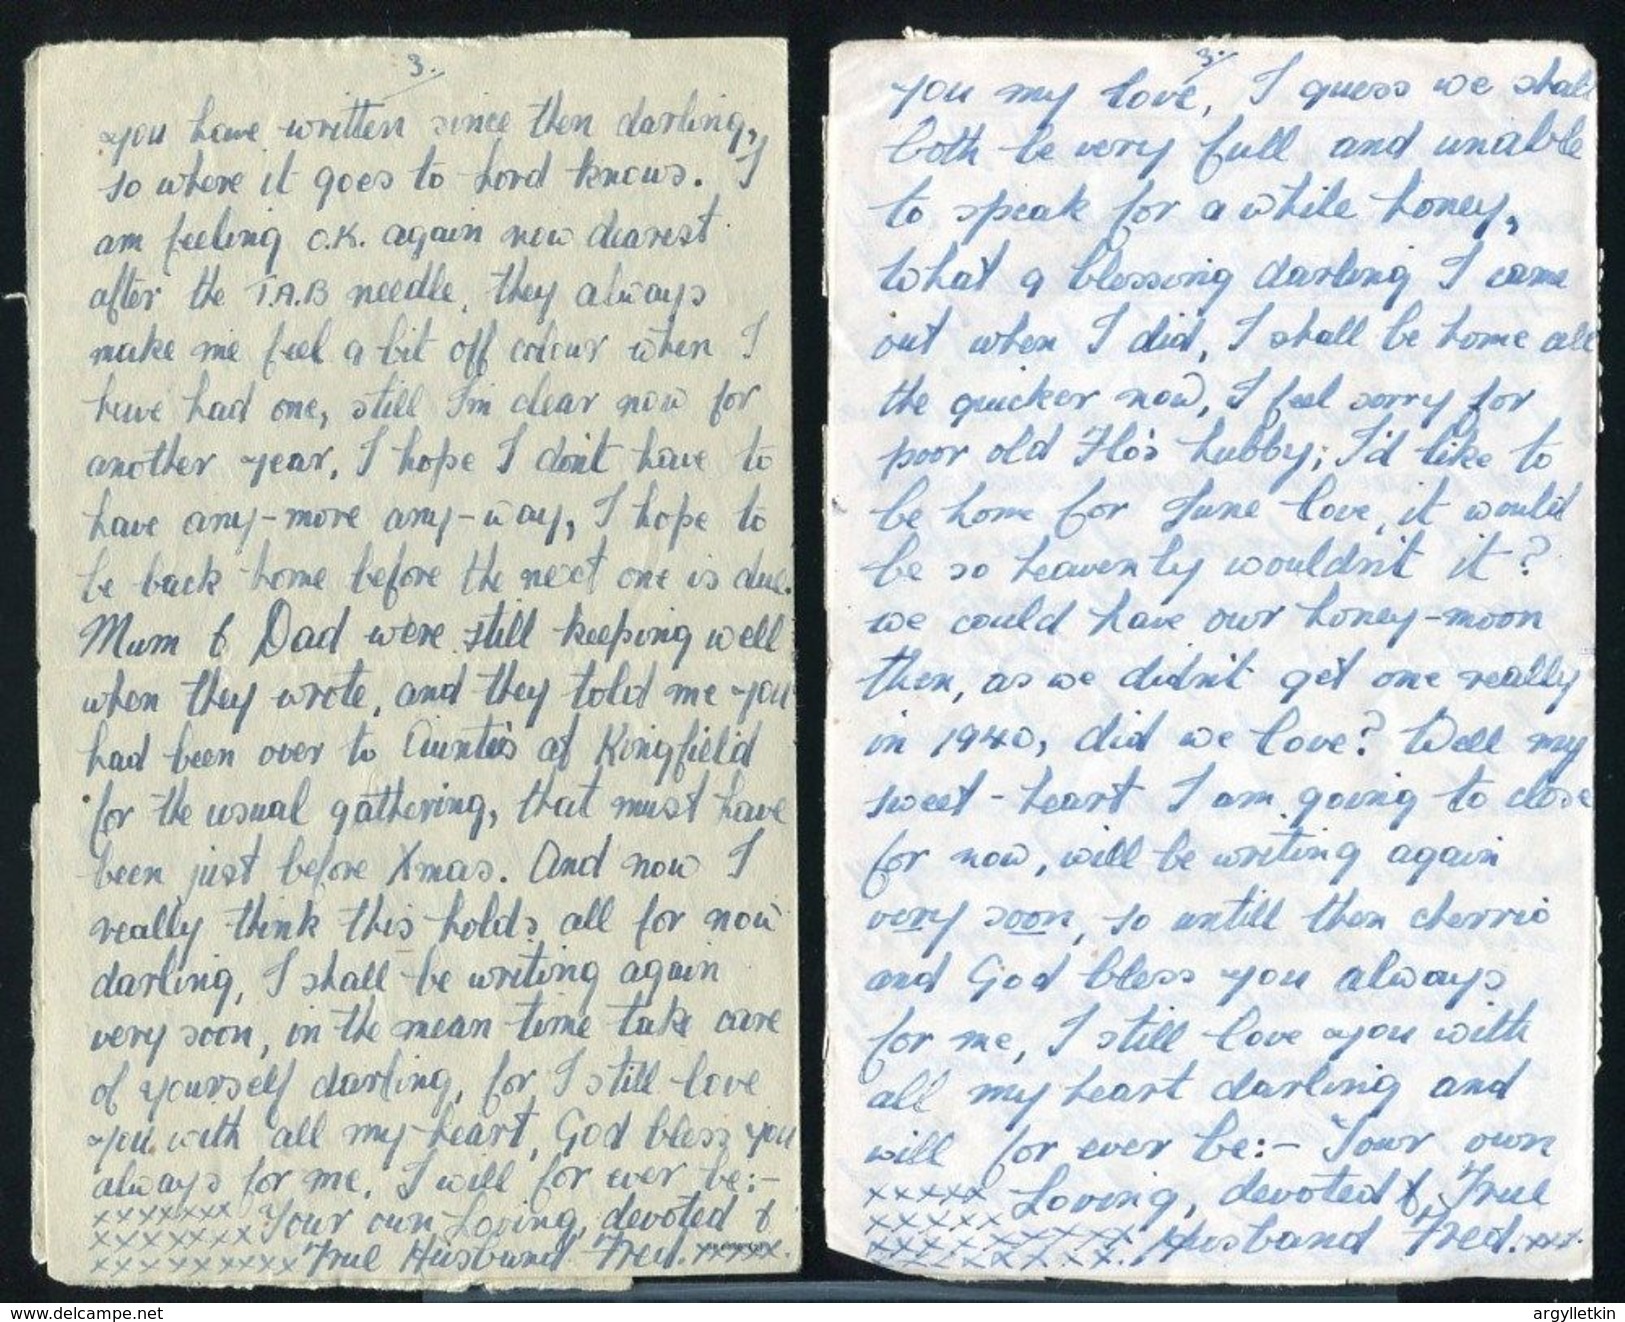 3.
you have written since then darling,
so where it goes to Lord knows. I
am feeling O.K. again now dearest
after the T.A.B needle, they always
make me feel a bit off colour when I
have had one, still I'm clear now for
another year, I hope I don't have to
have any-more any-way, I hope to
be back home before the next one is due.
Mum & Dad were still keeping well
when they wrote, and they told me you
had been over to Auntie's at Kingfield
for the usual gathering, that must have
been just before Xmas. And now I
really think this holds all for now
darling, I shall be writing again
very soon, in the mean time take care
of yourself darling, for I still love
you with all my heart, God bless you
always for me. I will for ever be:-
xxxxxxx Your own Loving, devoted &
xxxxxxxxx True Husband Fred. xxxxx.
3.
you my love, I guess we shall
both be very full and unable
to speak for a while honey,
what a blessing darling I came
out when I did, I shall be home all
the quicker now, I feel sorry for
poor old Flo's hubby; I'd like to
be home for June love, it would
be so heavenly wouldn't it?
we could have our honey-moon
then, as we didn't get one really
in 1940, did we love? Well my
sweet-heart I am going to close
for now, will be writing again
very soon, so untill then cherrio
and God bless you always
for me, I still love you with
all my heart darling and
will for ever be:- Your own
xxxxx Loving, devoted & True
xxxxxxxxxx. Husband Fred. xxx.
www.delcampe.net
argylletkin